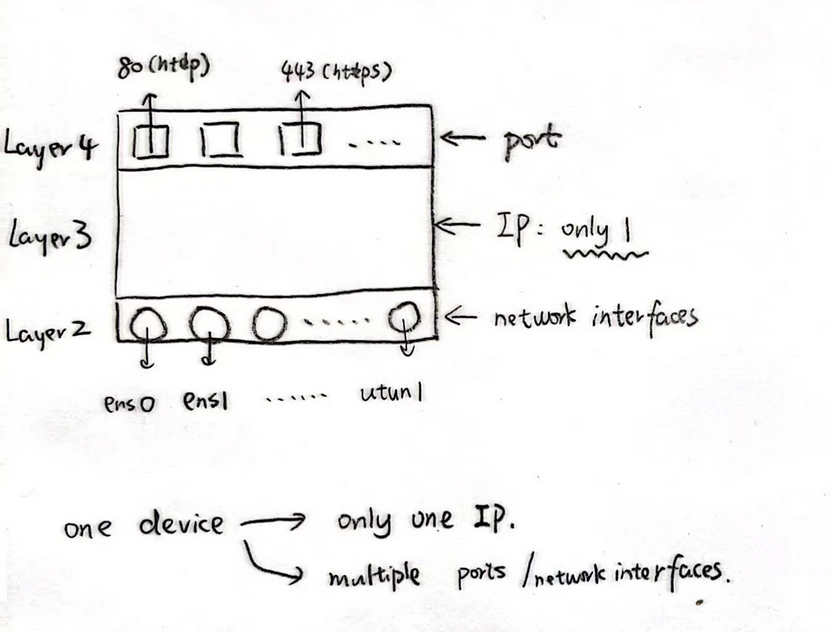 80 (http) 443 (https)
Layer 4 ..... ← port
Layer 3 ← IP: only 1
Layer 2 ...... ← network interfaces
ens0 ens1 ...... utun1
one device → only one IP.
→ multiple ports / network interfaces.